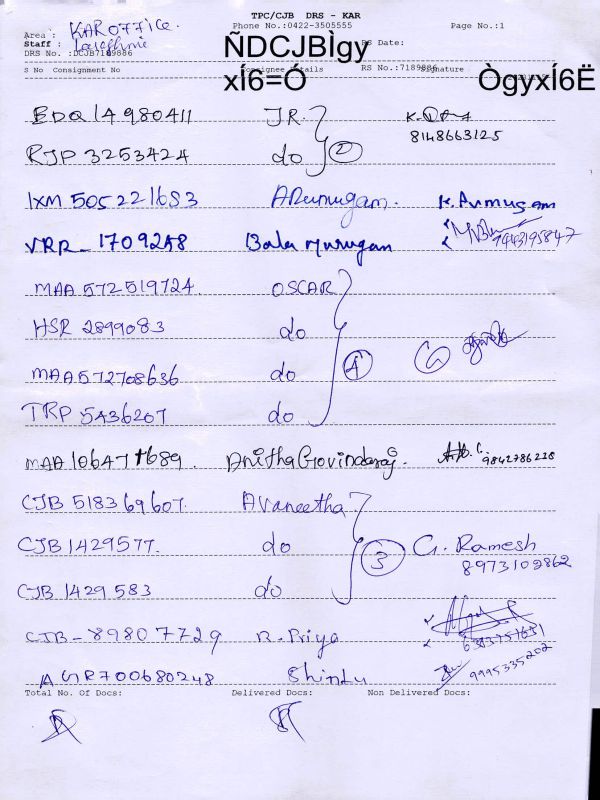 TPC/CJB DRS - KAR
Phone No.:0422-3505555 Page No.:1
Area : KAR OFFICE.
Staff :
DRS No. :DCJB7189886 RS Date:
ÑDCJBÌgy
S No Consignment No Consignee Details RS No.:7189886 Signature
xÍ6=Ó ÒgyxÍ6Ë
EDQ 14980411 JR.
8148663125
RJP 3253424 do 2
IXM 505221653 ARumugam. K. Armugam
VRR - 1709258 Bala murugan
MAA 572519724. OSCAR
HSR 2899083 do
MAA572708636 do 4
TRP 5436207 do
AnithaGovindaraj. 9842786218
CJB 518369607. Avaneetha
CJB 1429577. do 3 G. Ramesh
8973102862
CJB 1429583 do
CJB - 89807729 R. Priya
AGR700680248 Shinlu 9995335202
Total No. Of Docs: Delivered Docs: Non Delivered Docs: